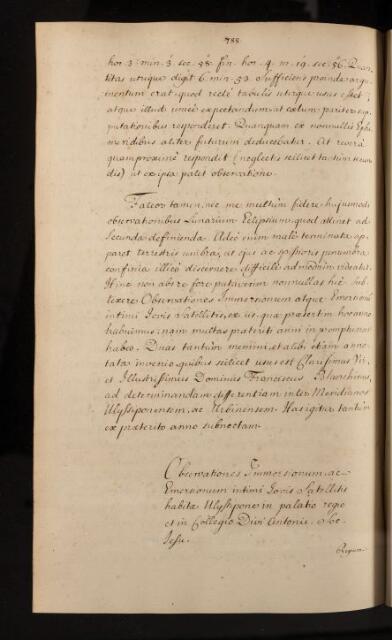 788.
hor. 3. min. 3. sec. 28. fin. hor. 4. m. 19. sec. 56. Quan-
titas utrique digit. 6. min. 53. Sufficiens proinde argu-
mentum erat, quod recte tabulis uterque usus esset,
atque illud unice expectandum, ut cœlum pariter sup-
putationibus responderet. Quanquam ex nonnullis Ephe-
meridibus aliter futurum deducebatur. At revera
quam proxime respondit (neglectis scilicet tantum secun-
dis) ut ex ipsa patet observatione.
Fateor tamen, nec me multum fidere hujusmodi
observationibus Lunarium Eclipsium, quod attinet ad
secunda definienda. Adeo enim male terminata ap-
paret terrestris umbra, ut ejus ac spissioris penumbræ
confinia illico discernere difficile admodum videatur.
Hinc non abs re fore putaverim nonnullas hic sub-
texere Observationes Immersionum atque Emersionum
intimi Jovis Satellitis, ex iis, quæ præsertim hoc anno
habuimus; nam multas præteriti anni in promptu non
habeo. Duas tantum memini, et alibi etiam anno-
tatas invenio, quibus scilicet usus est Clarissimus Vir,
et Illustrissimus Dominus Franciscus Blanchinus,
ad determinandam differentiam inter Meridianos
Ulyssiponensem, ac Urbinensem. Has igitur tantum
ex præterito anno subnectam.
Observationes Immersionum, ac
Emersionum intimi Jovis Satellitis
habitæ Ulyssipone in palatio regio
et in Collegio Divi Antonii, Soc.
Jesu.